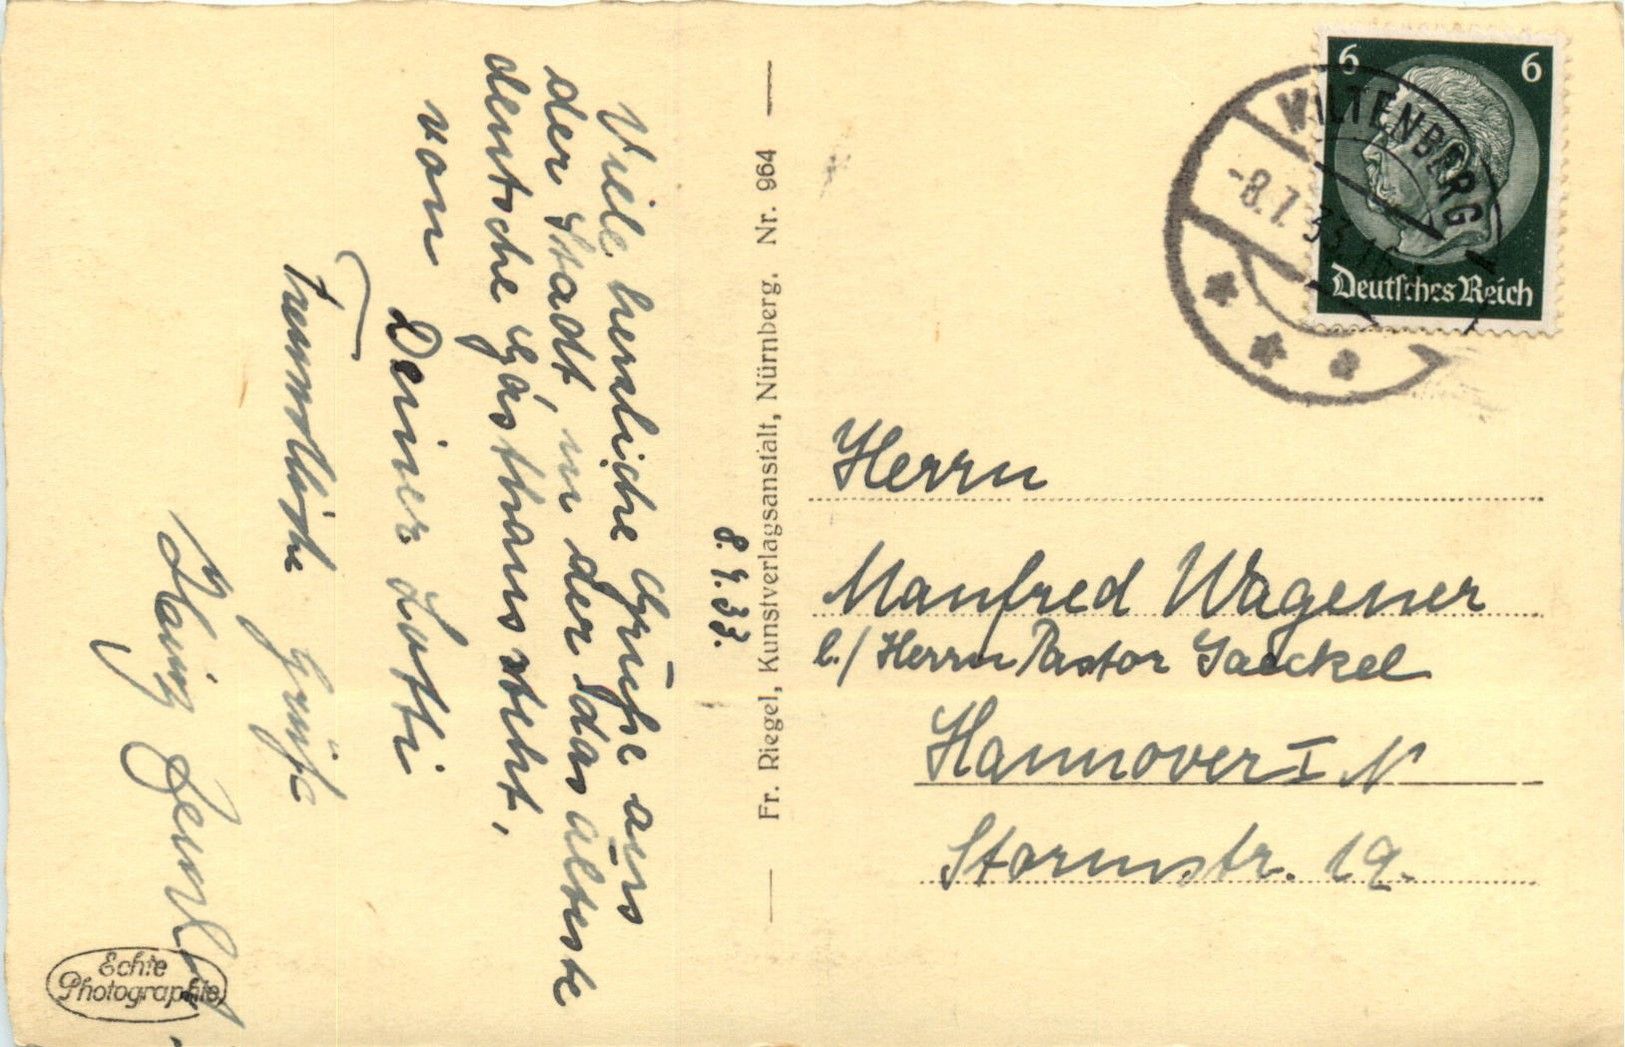 Viele herzliche Grüße aus
der Stadt, in der das älteste
deutsche Gasthaus steht,
von Deiner Lotti
Freundliche Grüße
8.7.33.
Fr. Riegel, Kunstverlagsanstalt, Nürnberg. Nr. 964
Echte
Photographie
6 6
Deutsches Reich
MILTENBERG
-8.7.33.16
Herrn
Manfred Wagener
b./ Herrn Pastor Jaeckel
Hannover I N
Stormstr. 19.